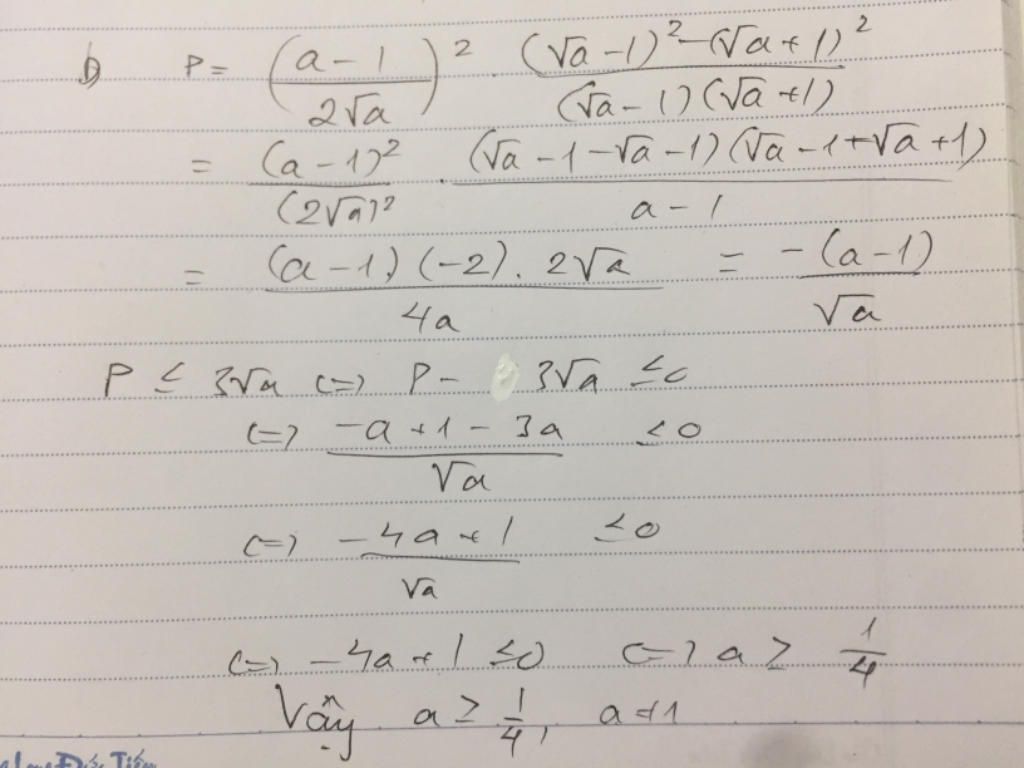 b) P = (a - 1 / 2√a)² . (√a - 1)² - (√a + 1)² / (√a - 1)(√a + 1)
= (a - 1)² / (2√a)² . (√a - 1 - √a - 1)(√a - 1 + √a + 1) / a - 1
= (a - 1)(-2) . 2√a / 4a = -(a - 1) / √a
P ≤ 3√a (=) P - 3√a ≤ 0
(=) -a + 1 - 3a / √a ≤ 0
(=) -4a + 1 / √a ≤ 0
(=) -4a + 1 ≤ 0 (=) a ≥ 1/4
Vậy a ≥ 1/4, a ≠ 1
Đức Tiến